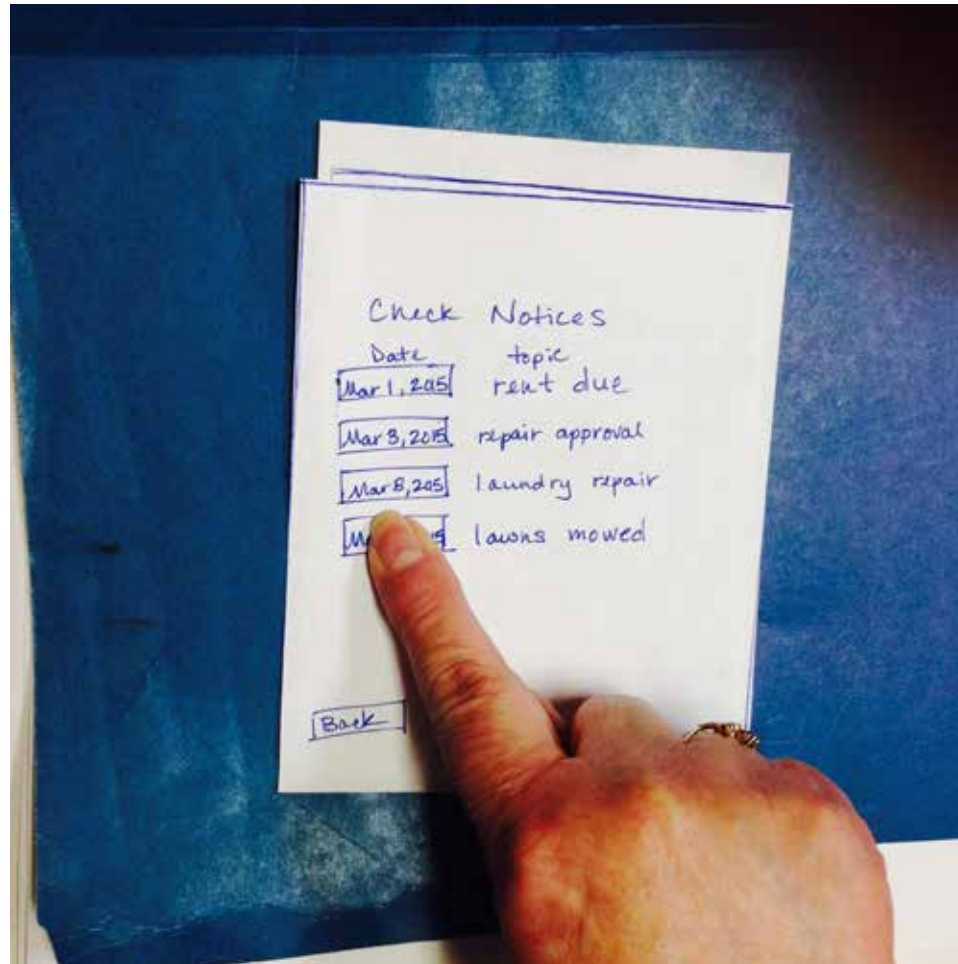 Check Notices
Date topic
Mar 1, 2015 rent due
Mar 3, 2015 repair approval
Mar 8, 205 laundry repair
lawns mowed
Back